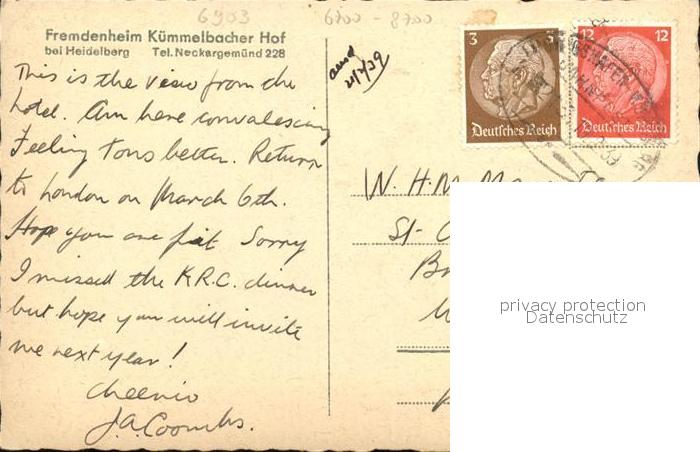 6903
6700 - 8700
Fremdenheim Kümmelbacher Hof
bei Heidelberg Tel. Neckargemünd 228
This is the view from the
hotel. Am here convalescing
Feeling tons better. Return
to London on March 6th.
Hope you are fit Sorry
I missed the K.R.C. dinner
but hope you will invite
me next year!
Cheerio
J.A. Coombs.
3
Deutsches Reich
12 12
Deutsches Reich
W. H. M.
St-
privacy protection
Datenschutz